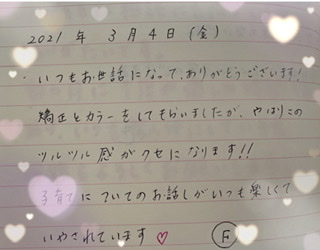 2021 年 3月4日(金)
・いつもお世話になって、ありがとうございます!
矯正とカラーをしてもらいましたが、やはりこの
ツルツル感がクセになります!!
子育てについてのお話しがいつも楽しくて
いやされています♡ F